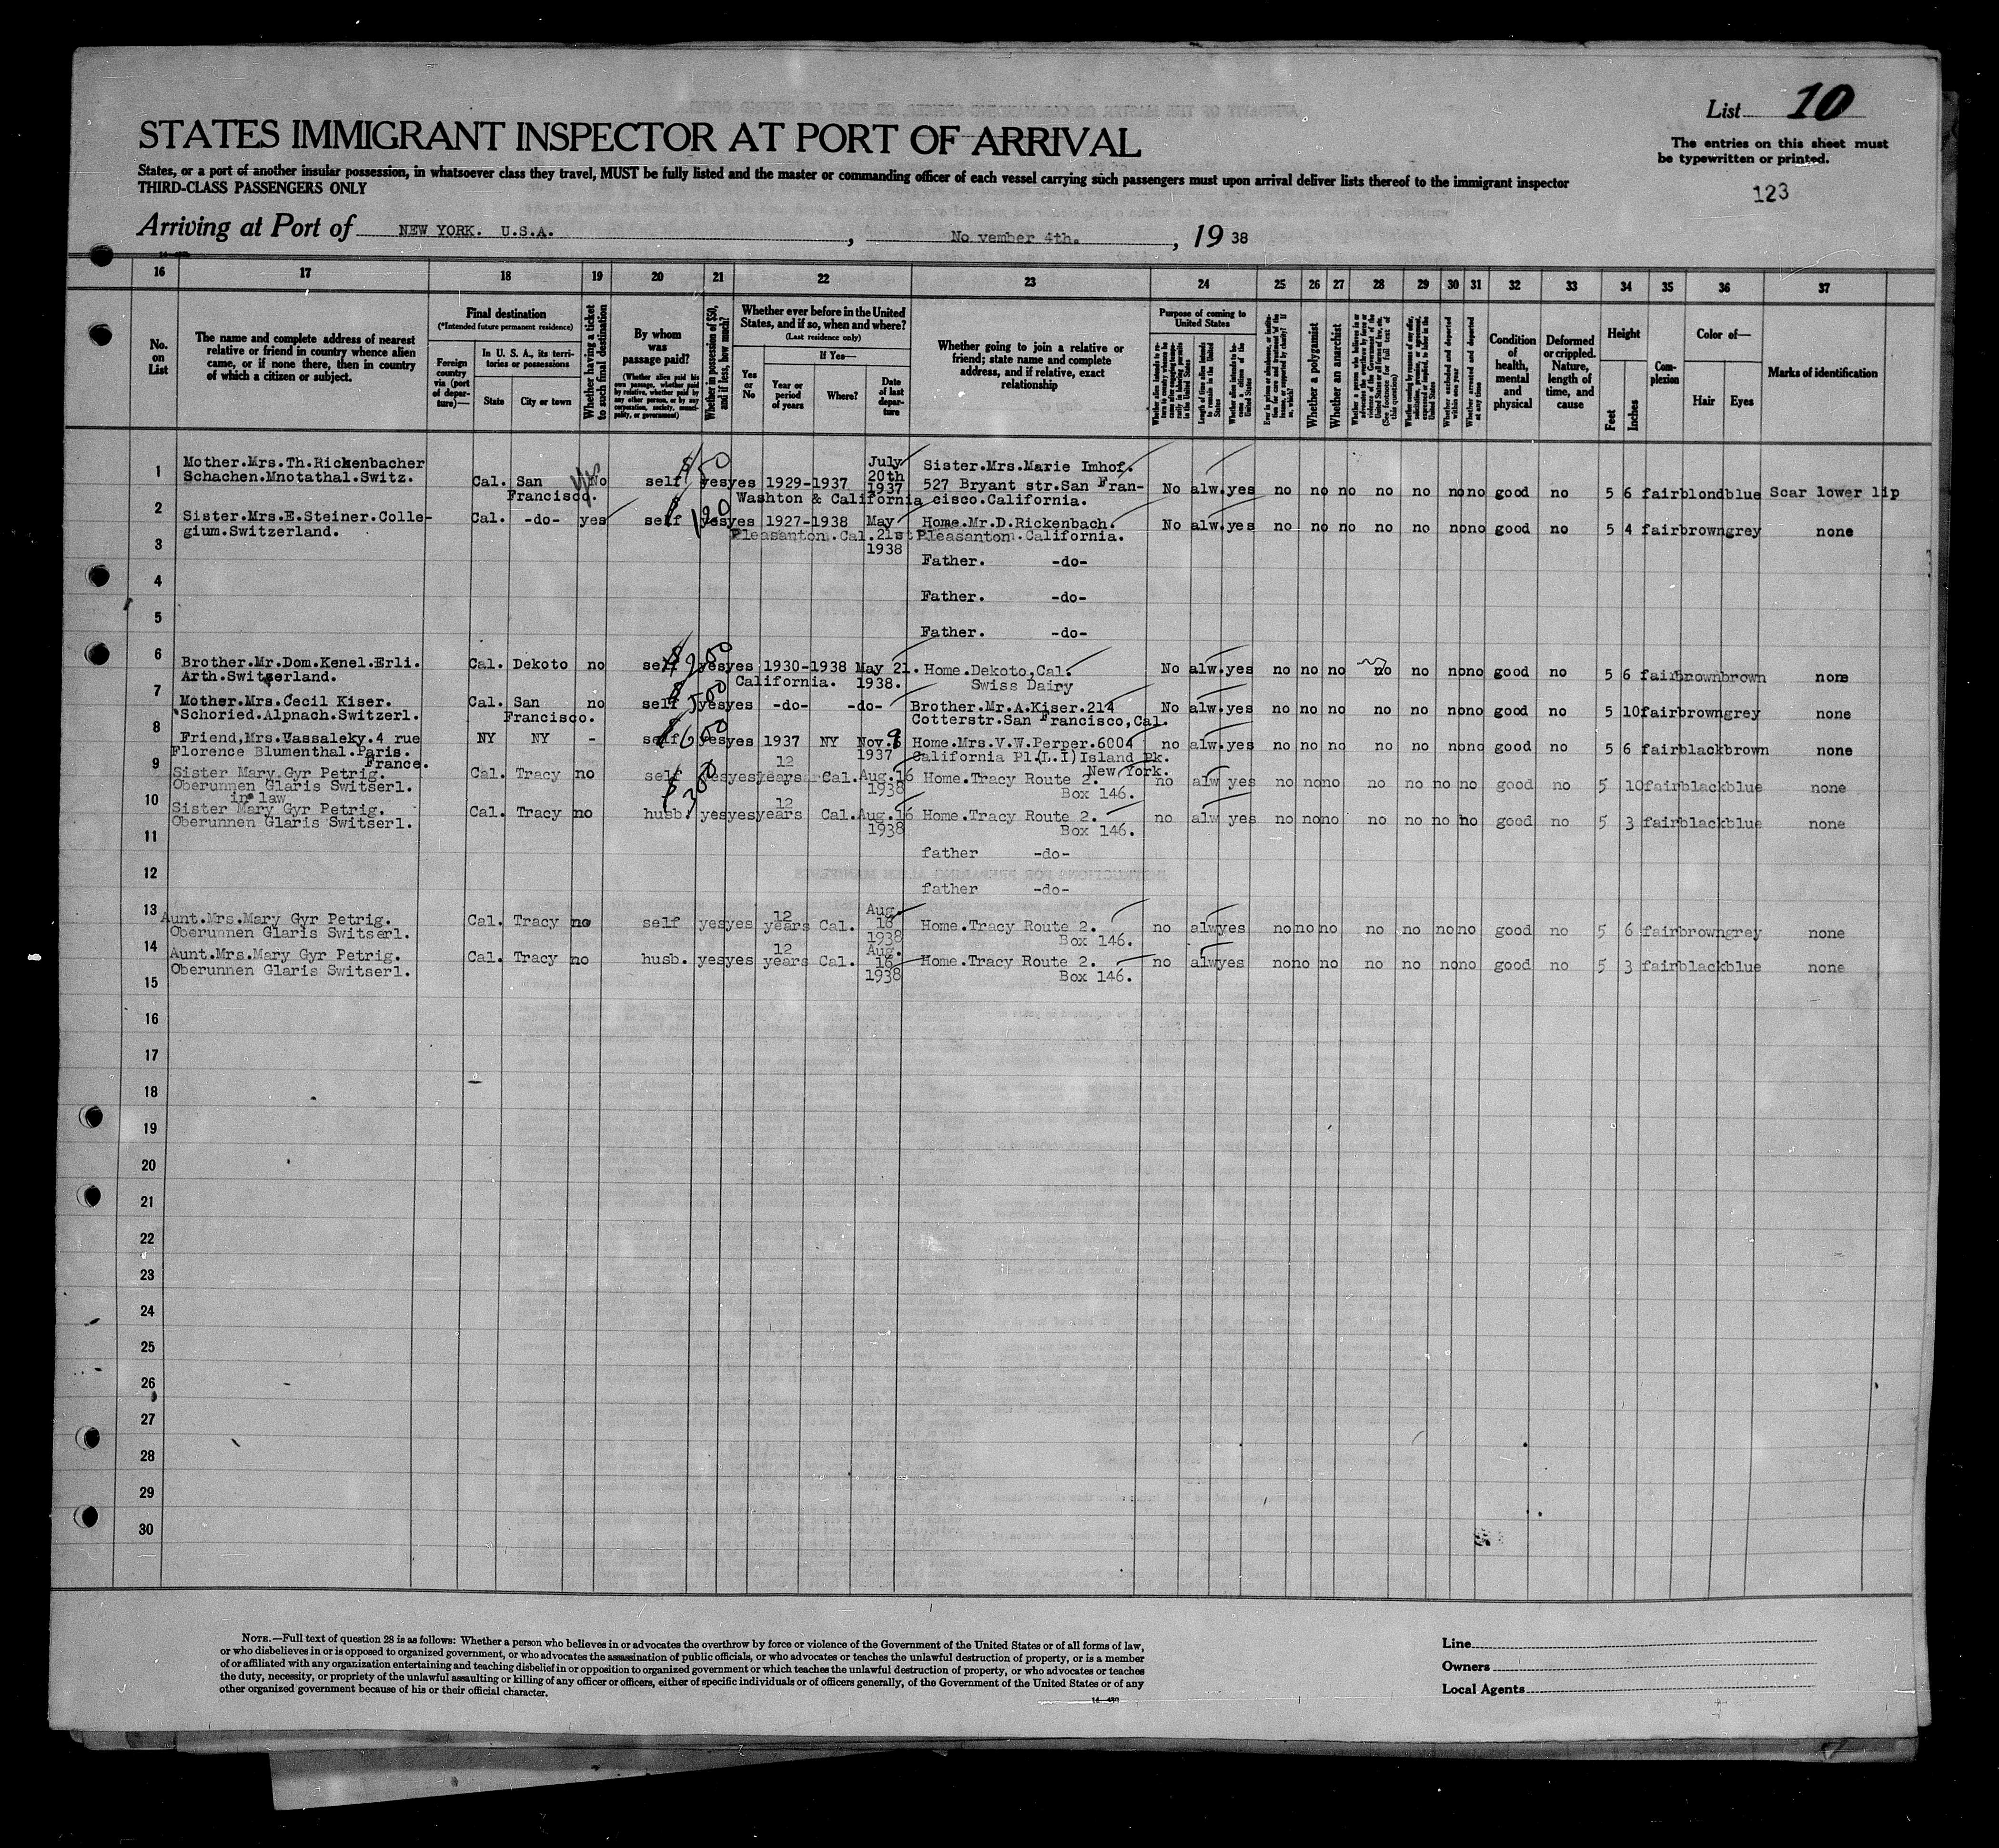 List 10
STATES IMMIGRANT INSPECTOR AT PORT OF ARRIVAL
The entries on this sheet must
be typewritten or printed.
States, or a port of another insular possession, in whatsoever class they travel, MUST be fully listed and the master or commanding officer of each vessel carrying such passengers must upon arrival deliver lists thereof to the immigrant inspector
THIRD-CLASS PASSENGERS ONLY
123
Arriving at Port of NEW YORK. U.S.A. , No vember 4th. , 19 38
16 17 18 19 20 21 22 23 24 25 26 27 28 29 30 31 32 33 34 35 36 37
No. on List
The name and complete address of nearest relative or friend in country whence alien came, or if none there, then in country of which a citizen or subject.
Final destination
(*Intended future permanent residence)
Foreign country via (port of departure)—
In U. S. A., its territories or possessions
State
City or town
Whether having a ticket to such final destination
By whom was passage paid?
(Whether alien paid his own passage, whether paid by relative, whether paid by any other person, or by any corporation, society, municipality, or government)
Whether in possession of $50, and if less, how much?
Whether ever before in the United States, and if so, when and where?
(Last residence only)
Yes or No
If Yes—
Year or period of years
Where?
Date of last departure
Whether going to join a relative or friend; state name and complete address, and if relative, exact relationship
Purpose of coming to United States
Length of time alien intends to remain in the United States
Whether alien intends to become a citizen of the United States
Whether a polygamist
Whether an anarchist
Whether excluded and deported within one year
Whether arrested and deported at any time
Condition of health, mental and physical
Deformed or crippled. Nature, length of time, and cause
Height
Feet
Inches
Complexion
Color of—
Hair
Eyes
Marks of identification
1 Mother.Mrs.Th.Rickenbacher
Schachen.Mnotathal.Switz. Cal. San Francisco. No yes self $150 yes yes 1929-1937 July 20th 1937 Sister.Mrs.Marie Imhof.
527 Bryant str.San Fran- No alw. yes no no no no no no no good no 5 6 fair blond blue Scar lower lip
Washton & California cisco.California.
2 Sister.Mrs.E.Steiner.Colle-
gium.Switzerland. Cal. -do- yes self $120 yes yes 1927-1938 May 21st 1938 Home.Mr.D.Rickenbach. No alw. yes no no no no no no no good no 5 4 fair brown grey none
Pleasanton.Cal. Pleasanton.California.
3 Father. -do-
4 Father. -do-
5 Father. -do-
6 Brother.Mr.Dom.Kenel.Erli.
Arth.Switzerland. Cal. Dekoto no self yes yes 1930-1938 May 21. 1938. Home.Dekoto,Cal. No alw. yes no no no no no no no good no 5 6 fair brown brown none
California. Swiss Dairy
7 Mother.Mrs.Cecil Kiser.
Schoried.Alpnach.Switzerl. Cal. San Francisco. no self $500 yes yes -do- -do- Brother.Mr.A.Kiser.214 No alw. yes no no no no no no no good no 5 10 fair brown grey none
Cotterstr.San Francisco,Cal.
8 Friend,Mrs.Vassaleky.4 rue
Florence Blumenthal.Paris.
France. NY NY - self $600 yes yes 1937 NY Nov. 9 1937 Home.Mrs.V.W.Perper.6004 no alw. yes no no no no no no no good no 5 6 fair black brown none
California Pl.(L.I)Island Pk.
New York.
9 Sister Mary Gyr Petrig.
Oberunnen Glaris Switserl. Cal. Tracy no self yes yes 12 years Cal. Aug.16 1938 Home.Tracy Route 2. no alw yes no no no no no no no good no 5 10 fair black blue none
Box 146.
in law
10 Sister Mary Gyr Petrig.
Oberunnen Glaris Switserl. Cal. Tracy no husb. yes yes 12 years Cal. Aug.16 1938 Home.Tracy Route 2. no alw yes no no no no no no no good no 5 3 fair black blue none
Box 146.
11 father -do-
12 father -do-
13 Aunt.Mrs.Mary Gyr Petrig.
Oberunnen Glaris Switserl. Cal. Tracy no self yes yes 12 years Cal. Aug. 16 1938 Home.Tracy Route 2. no alw yes no no no no no no no good no 5 6 fair brown grey none
Box 146.
14 Aunt.Mrs.Mary Gyr Petrig.
Oberunnen Glaris Switserl. Cal. Tracy no husb. yes yes 12 years Cal. Aug. 16 1938 Home.Tracy Route 2. no alw yes no no no no no no no good no 5 3 fair black blue none
Box 146.
15
16
17
18
19
20
21
22
23
24
25
26
27
28
29
30
NOTE.—Full text of question 28 is as follows: Whether a person who believes in or advocates the overthrow by force or violence of the Government of the United States or of all forms of law,
or who disbelieves in or is opposed to organized government, or who advocates the assassination of public officials, or who advocates or teaches the unlawful destruction of property, or is a member
of or affiliated with any organization entertaining and teaching disbelief in or opposition to organized government or which teaches the unlawful destruction of property, or who advocates or teaches
the duty, necessity, or propriety of the unlawful assaulting or killing of any officer or officers, either of specific individuals or of officers generally, of the Government of the United States or of any
other organized government because of his or their official character.
Line
Owners
Local Agents